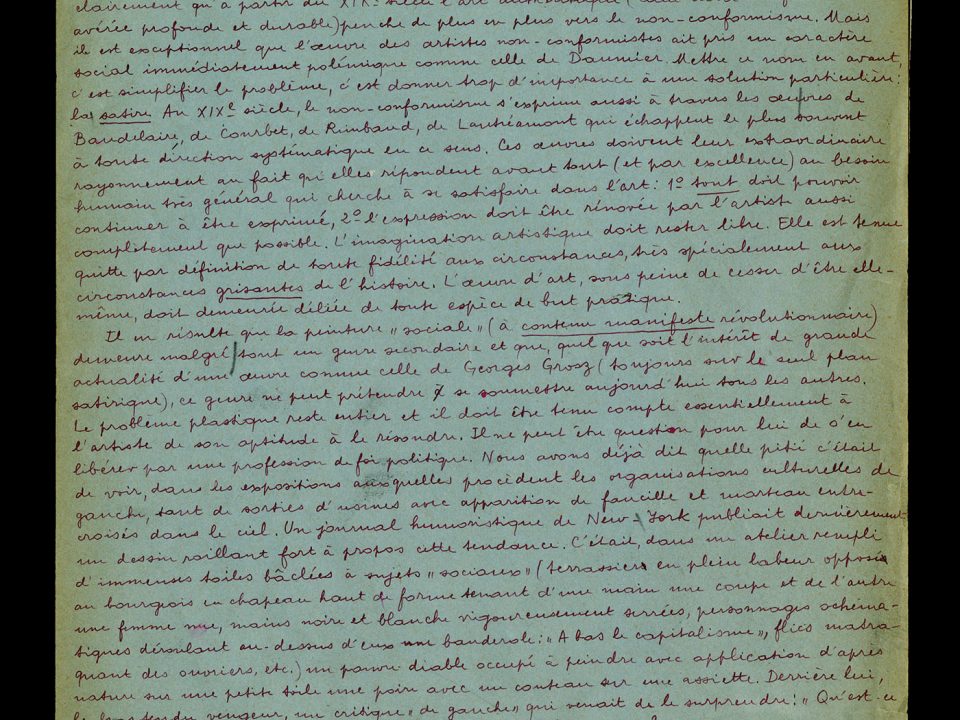 clairement qu'à partir du XIXe siècle l'art authentique
avérée profonde et durable) penche de plus en plus vers le non-conformisme. Mais
il est exceptionnel que l'œuvre des artistes non-conformistes ait pris un caractère
social immédiatement polémique comme celle de Daumier. Mettre ce nom en avant,
c'est simplifier le problème, c'est donner trop d'importance à une solution particulière:
la satire. Au XIXe siècle, le non-conformisme s'exprime aussi à travers les œuvres de
Baudelaire, de Courbet, de Rimbaud, de Lautréamont qui échappent le plus souvent
à toute direction systématique en ce sens. Ces œuvres doivent leur extraordinaire
rayonnement au fait qu'elles répondent avant tout (et par excellence) au besoin
humain très général qui cherche à se satisfaire dans l'art: 1º tout doit pouvoir
continuer à être exprimé, 2º l'expression doit être rénovée par l'artiste aussi
complètement que possible. L'imagination artistique doit rester libre. Elle est tenue
quitte par définition de toute fidélité aux circonstances, très spécialement aux
circonstances grisantes de l'histoire. L'œuvre d'art, sous peine de cesser d'être elle-
même, doit demeurée déliée de toute espèce de but pratique.
Il en résulte que la peinture "sociale" (à contenu manifeste révolutionnaire)
demeure malgré tout un genre secondaire et que, quel que soit l'intérêt de grande
actualité d'une œuvre comme celle de Georges Grosz (toujours sur le seul plan
satirique), ce genre ne peut prétendre à se soumettre aujourd'hui tous les autres.
Le problème plastique reste entier et il doit être tenu compte essentiellement à
l'artiste de son aptitude à le résoudre. Il ne peut être question pour lui de s'en
libérer par une profession de foi politique. Nous avons déjà dit quelle pitié c'était
de voir, dans les expositions auxquelles procèdent les organisations culturelles de
gauche, tant de sorties d'usines avec apparition de faucille et marteau entre-
croisés dans le ciel. Un journal humoristique de New-York publiait dernièrement
un dessin raillant fort à propos cette tendance. C'était, dans un atelier rempli
d'immenses toiles bâclées à sujets "sociaux" (terrassiers en plein labeur opposés
au bourgeois en chapeau haut de forme tenant d'une main une coupe et de l'autre
une femme nue, mains noire et blanche vigoureusement serrées, personnages schéma-
tiques déroulant au-dessus d'eux une banderole: "A bas le capitalisme", flics matra-
quant des ouvriers, etc.) un pauvre diable occupé à peindre avec application d'après
nature sur une petite toile une poire avec un couteau sur une assiette. Derrière lui,
vengeur, un critique "de gauche" qui venait de le surprendre: "Qu'est-ce